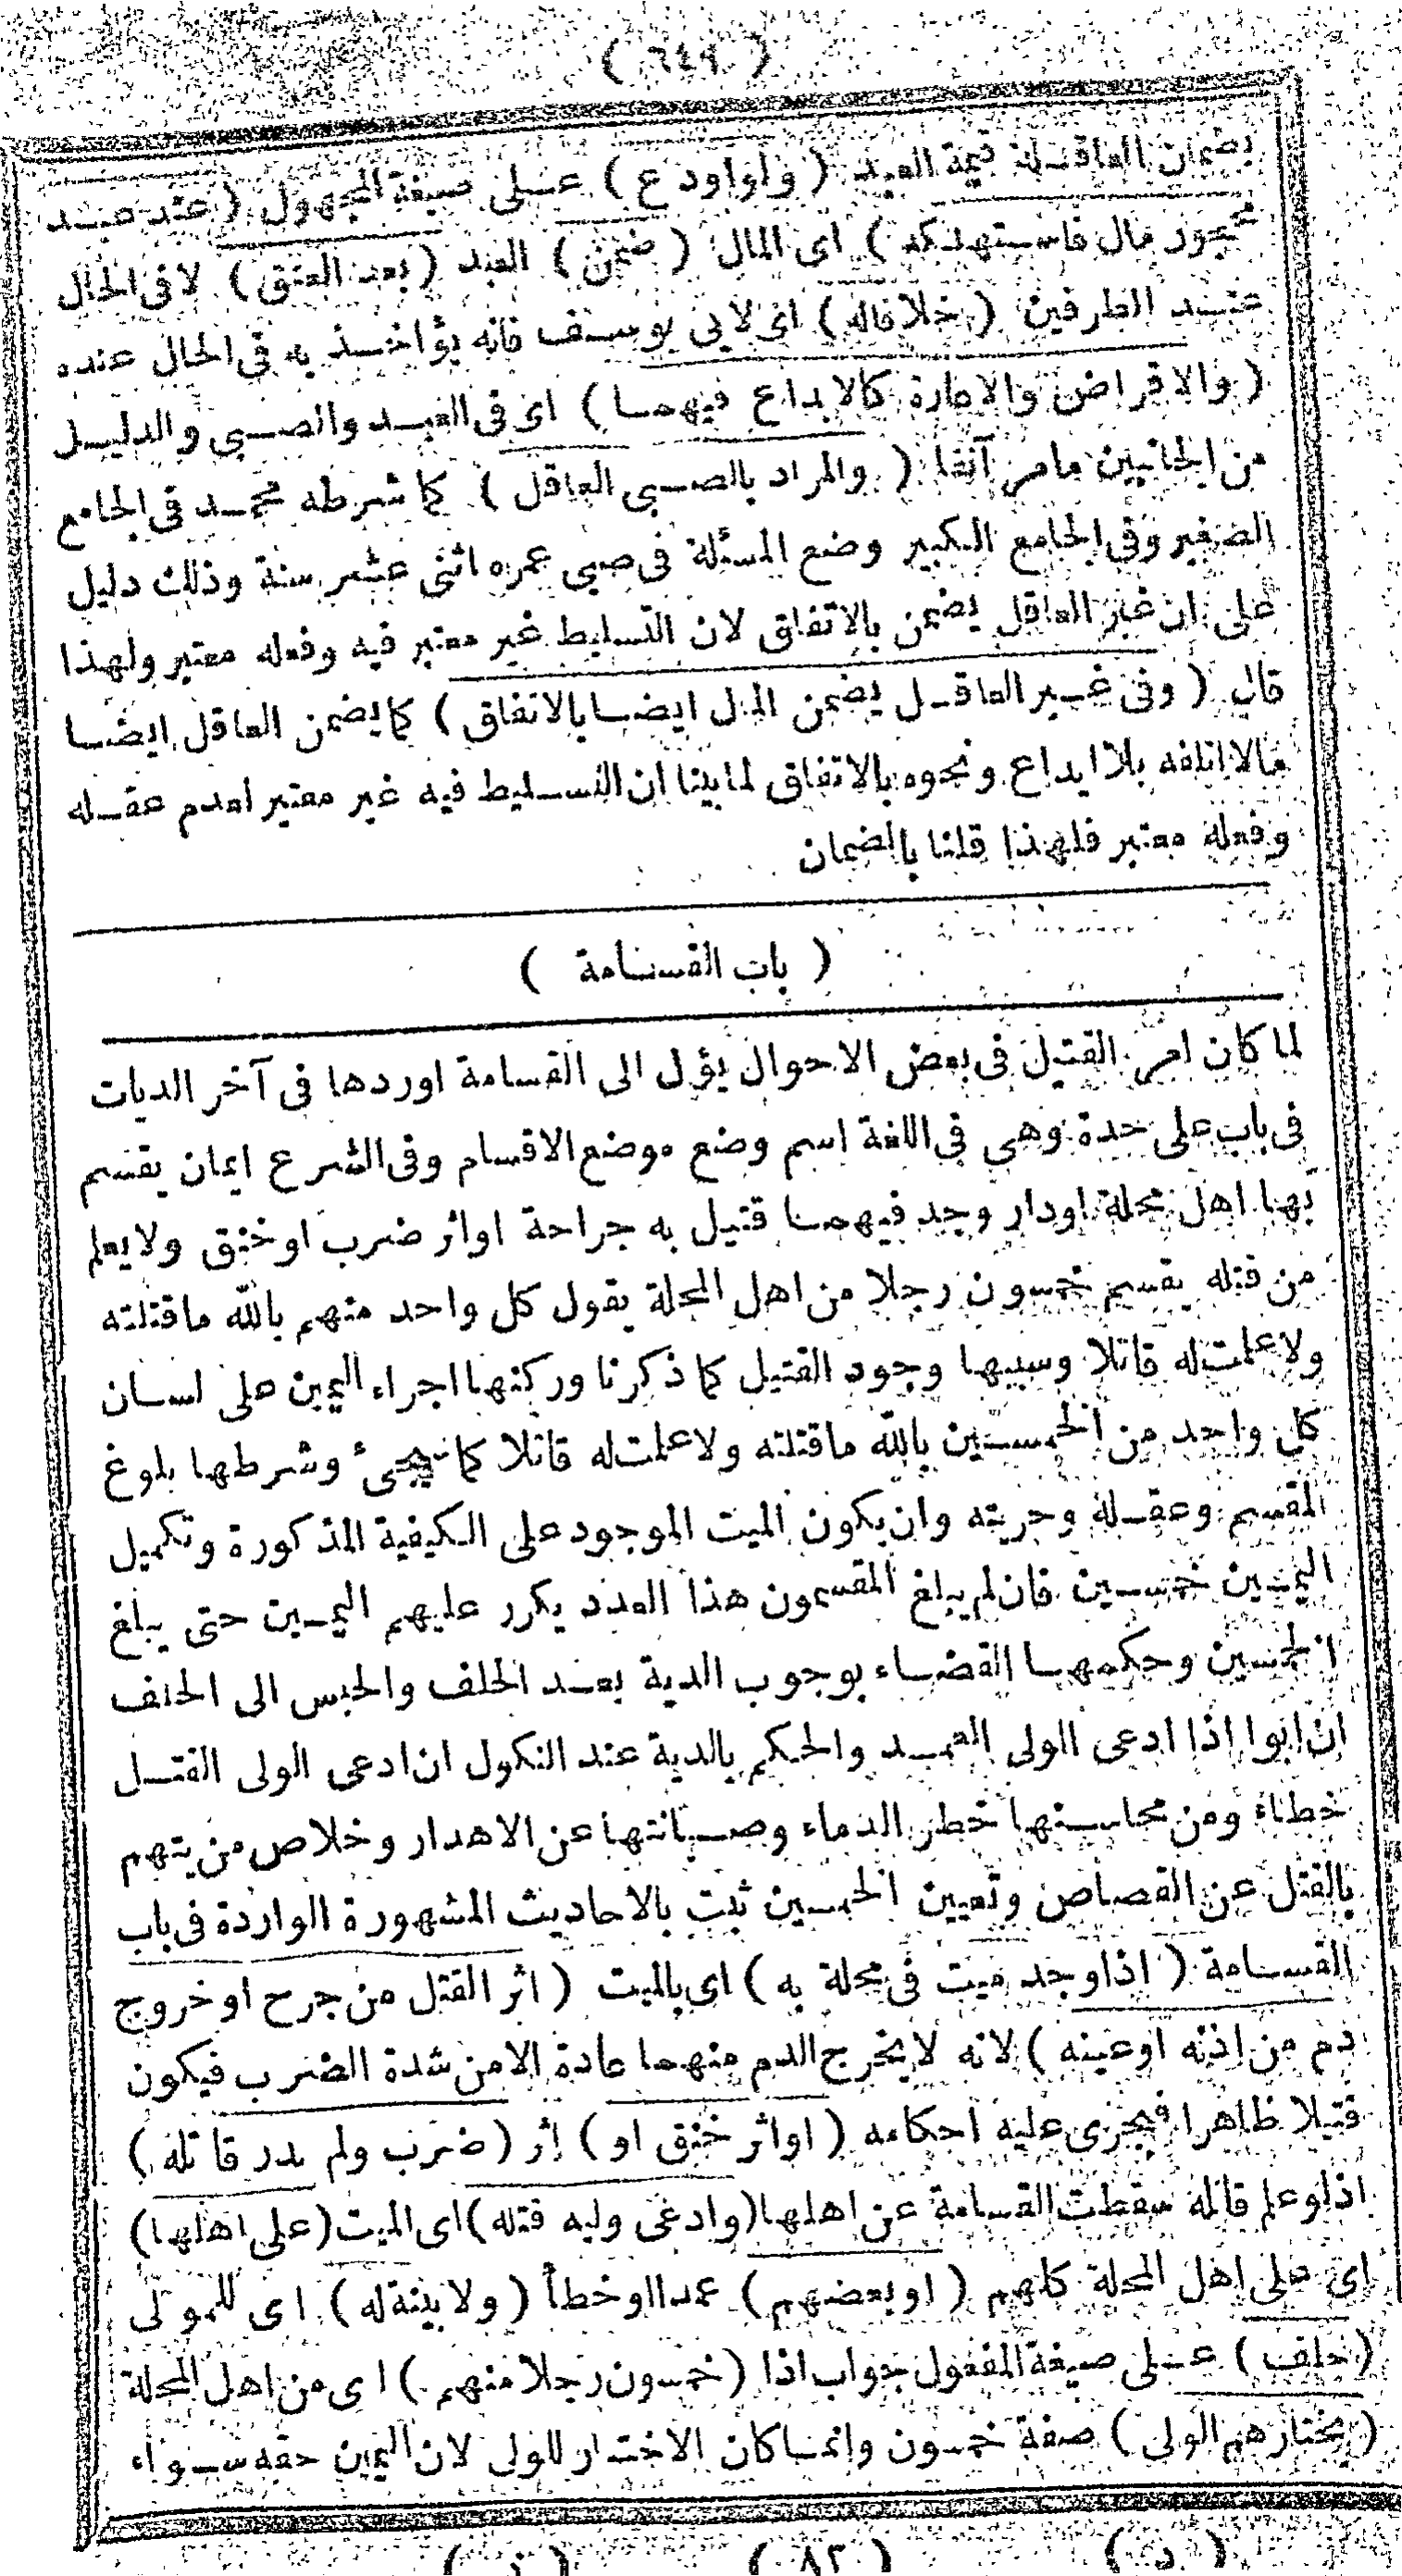 ( ٦٤٩ )
بضمان العاقلة قيمة العبد ( ولو اودع ) على صيغة المجهول ( عند عبد
محجور مال فاستهلكه ) اى المال ( ضمن ) العبد ( بعد العتق ) لا فى الحال
عند الطرفين ( خلافاله ) اى لابى يوسف فانه يؤاخذ به فى الحال عنده
( والاقراض والاعارة كالايداع فيهما ) اى فى العبد والصبى والدليل
من الجانبين مامر آنفا ( والمراد بالصبى العاقل ) كما شرطه محمد فى الجامع
الصغير وفى الجامع الكبير وضع المسئلة فى صبى عمره اثنى عشر سنة وذلك دليل
على ان غير العاقل يضمن بالاتفاق لان التسليط غير معتبر فيه وفعله معتبر ولهذا
قال ( وفى غير العاقل يضمن المال ايضا بالاتفاق ) كما يضمن العاقل ايضا
مالا اتلفه بلا ايداع ونحوه بالاتفاق لما بينا ان التسليط فيه غير معتبر لعدم عقله
وفعله معتبر فلهذا قلنا بالضمان
( باب القسامة )
لما كان امر القتيل فى بعض الاحوال يؤل الى القسامة اوردها فى آخر الديات
فى باب على حدة وهى فى اللغة اسم وضع موضع الاقسام وفى الشرع ايمان يقسم
بها اهل محلة اودار وجد فيهما قتيل به جراحة اواثر ضرب اوخنق ولايعلم
من قتله يقسم خمسون رجلا من اهل المحلة يقول كل واحد منهم بالله ماقتلته
ولاعلمت له قاتلا وسببها وجود القتيل كما ذكرنا وركنها اجراء اليمين على لسان
كل واحد من الخمسين بالله ماقتلته ولاعلمت له قاتلا كما سيجئ وشرطها بلوغ
المقسم وعقله وحريته وان يكون الميت الموجود على الكيفية المذكورة وتكميل
اليمين خمسين فان لم يبلغ المقسمون هذا العدد يكرر عليهم اليمين حتى يبلغ
الخمسين وحكمها القضاء بوجوب الدية بعد الحلف والحبس الى الحلف
ان ابوا اذا ادعى الولى العمد والحكم بالدية عند النكول ان ادعى الولى القتل
خطاء ومن محاسنها خطر الدماء وصيانتها عن الاهدار وخلاص من يتهم
بالقتل عن القصاص وتعيين الخمسين ثبت بالاحاديث المشهورة الواردة فى باب
القسامة ( اذا وجد ميت فى محلة به ) اى بالميت ( اثر القتل من جرح او خروج
دم من اذنه اوعينه ) لانه لايخرج الدم منهما عادة الا من شدة الضرب فيكون
قتيلا ظاهرا فيجرى عليه احكامه ( اواثر خنق او ) اثر ( ضرب ولم يدر قاتله )
اذلوعلم قاتله سقطت القسامة عن اهلها ( وادعى وليه قتله ) اى الميت ( على اهلها )
اى على اهل المحلة كلهم ( اوبعضهم ) عمدا اوخطأ ( ولابينة له ) اى للمولى
( حلف ) على صيغة المفعول جواب اذا ( خمسون رجلا منهم ) اى من اهل المحلة
( يختارهم الولى ) صفة خمسون وانما كان الاختيار للولى لان اليمين حقه سواء
( د ) ( ٨٢ ) ( نى )